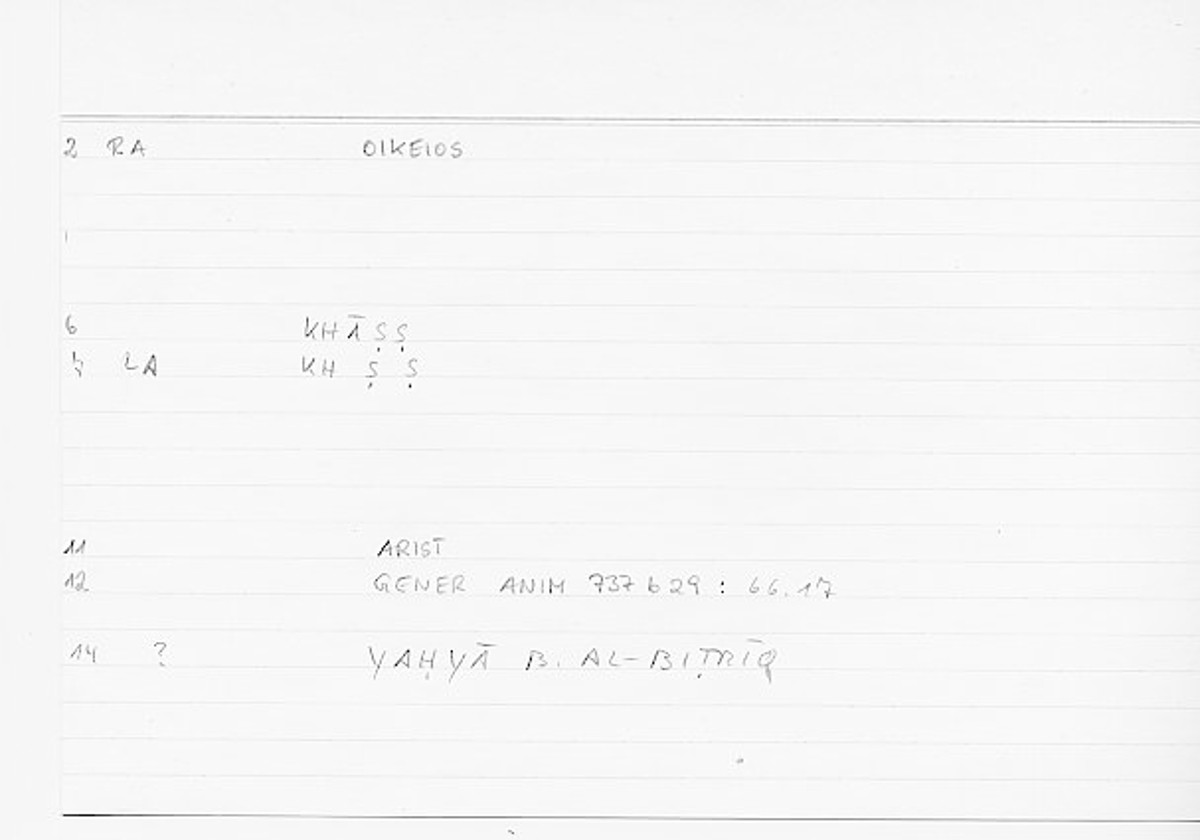 2 RA OIKEIOS
6 KHĀṢṢ
LA KH Ṣ Ṣ
11 ARIST
12 GENER ANIM 737 b 29 : 66.17
14 ? YAḤYĀ B. AL-BIṬRĪQ